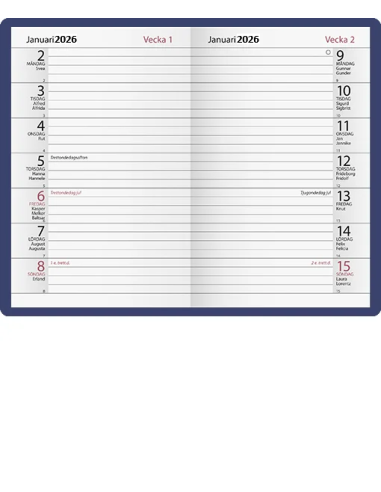 Januari 2026
Vecka 1
2
MÅNDAG
Svea
2
3
TISDAG
Alfred
Alfrida
3
4
ONSDAG
Rut
4
5
Trettondedagsafton
TORSDAG
Hanna
Hannele
5
6
Trettondedag jul
FREDAG
Kasper
Melker
Baltsar
6
7
LÖRDAG
August
Augusta
7
8
1 e. trettid.
SÖNDAG
Erland
8
Januari 2026
Vecka 2
9
MÅNDAG
Gunnar
Gunder
9
10
TISDAG
Sigurd
Sigbritt
10
11
ONSDAG
Jan
Jannike
11
12
TORSDAG
Frideborg
Fridolf
12
Tjugondedag jul
13
FREDAG
Knut
13
14
LÖRDAG
Felix
Felicia
14
2 e. trettid.
15
SÖNDAG
Laura
Lorentz
15